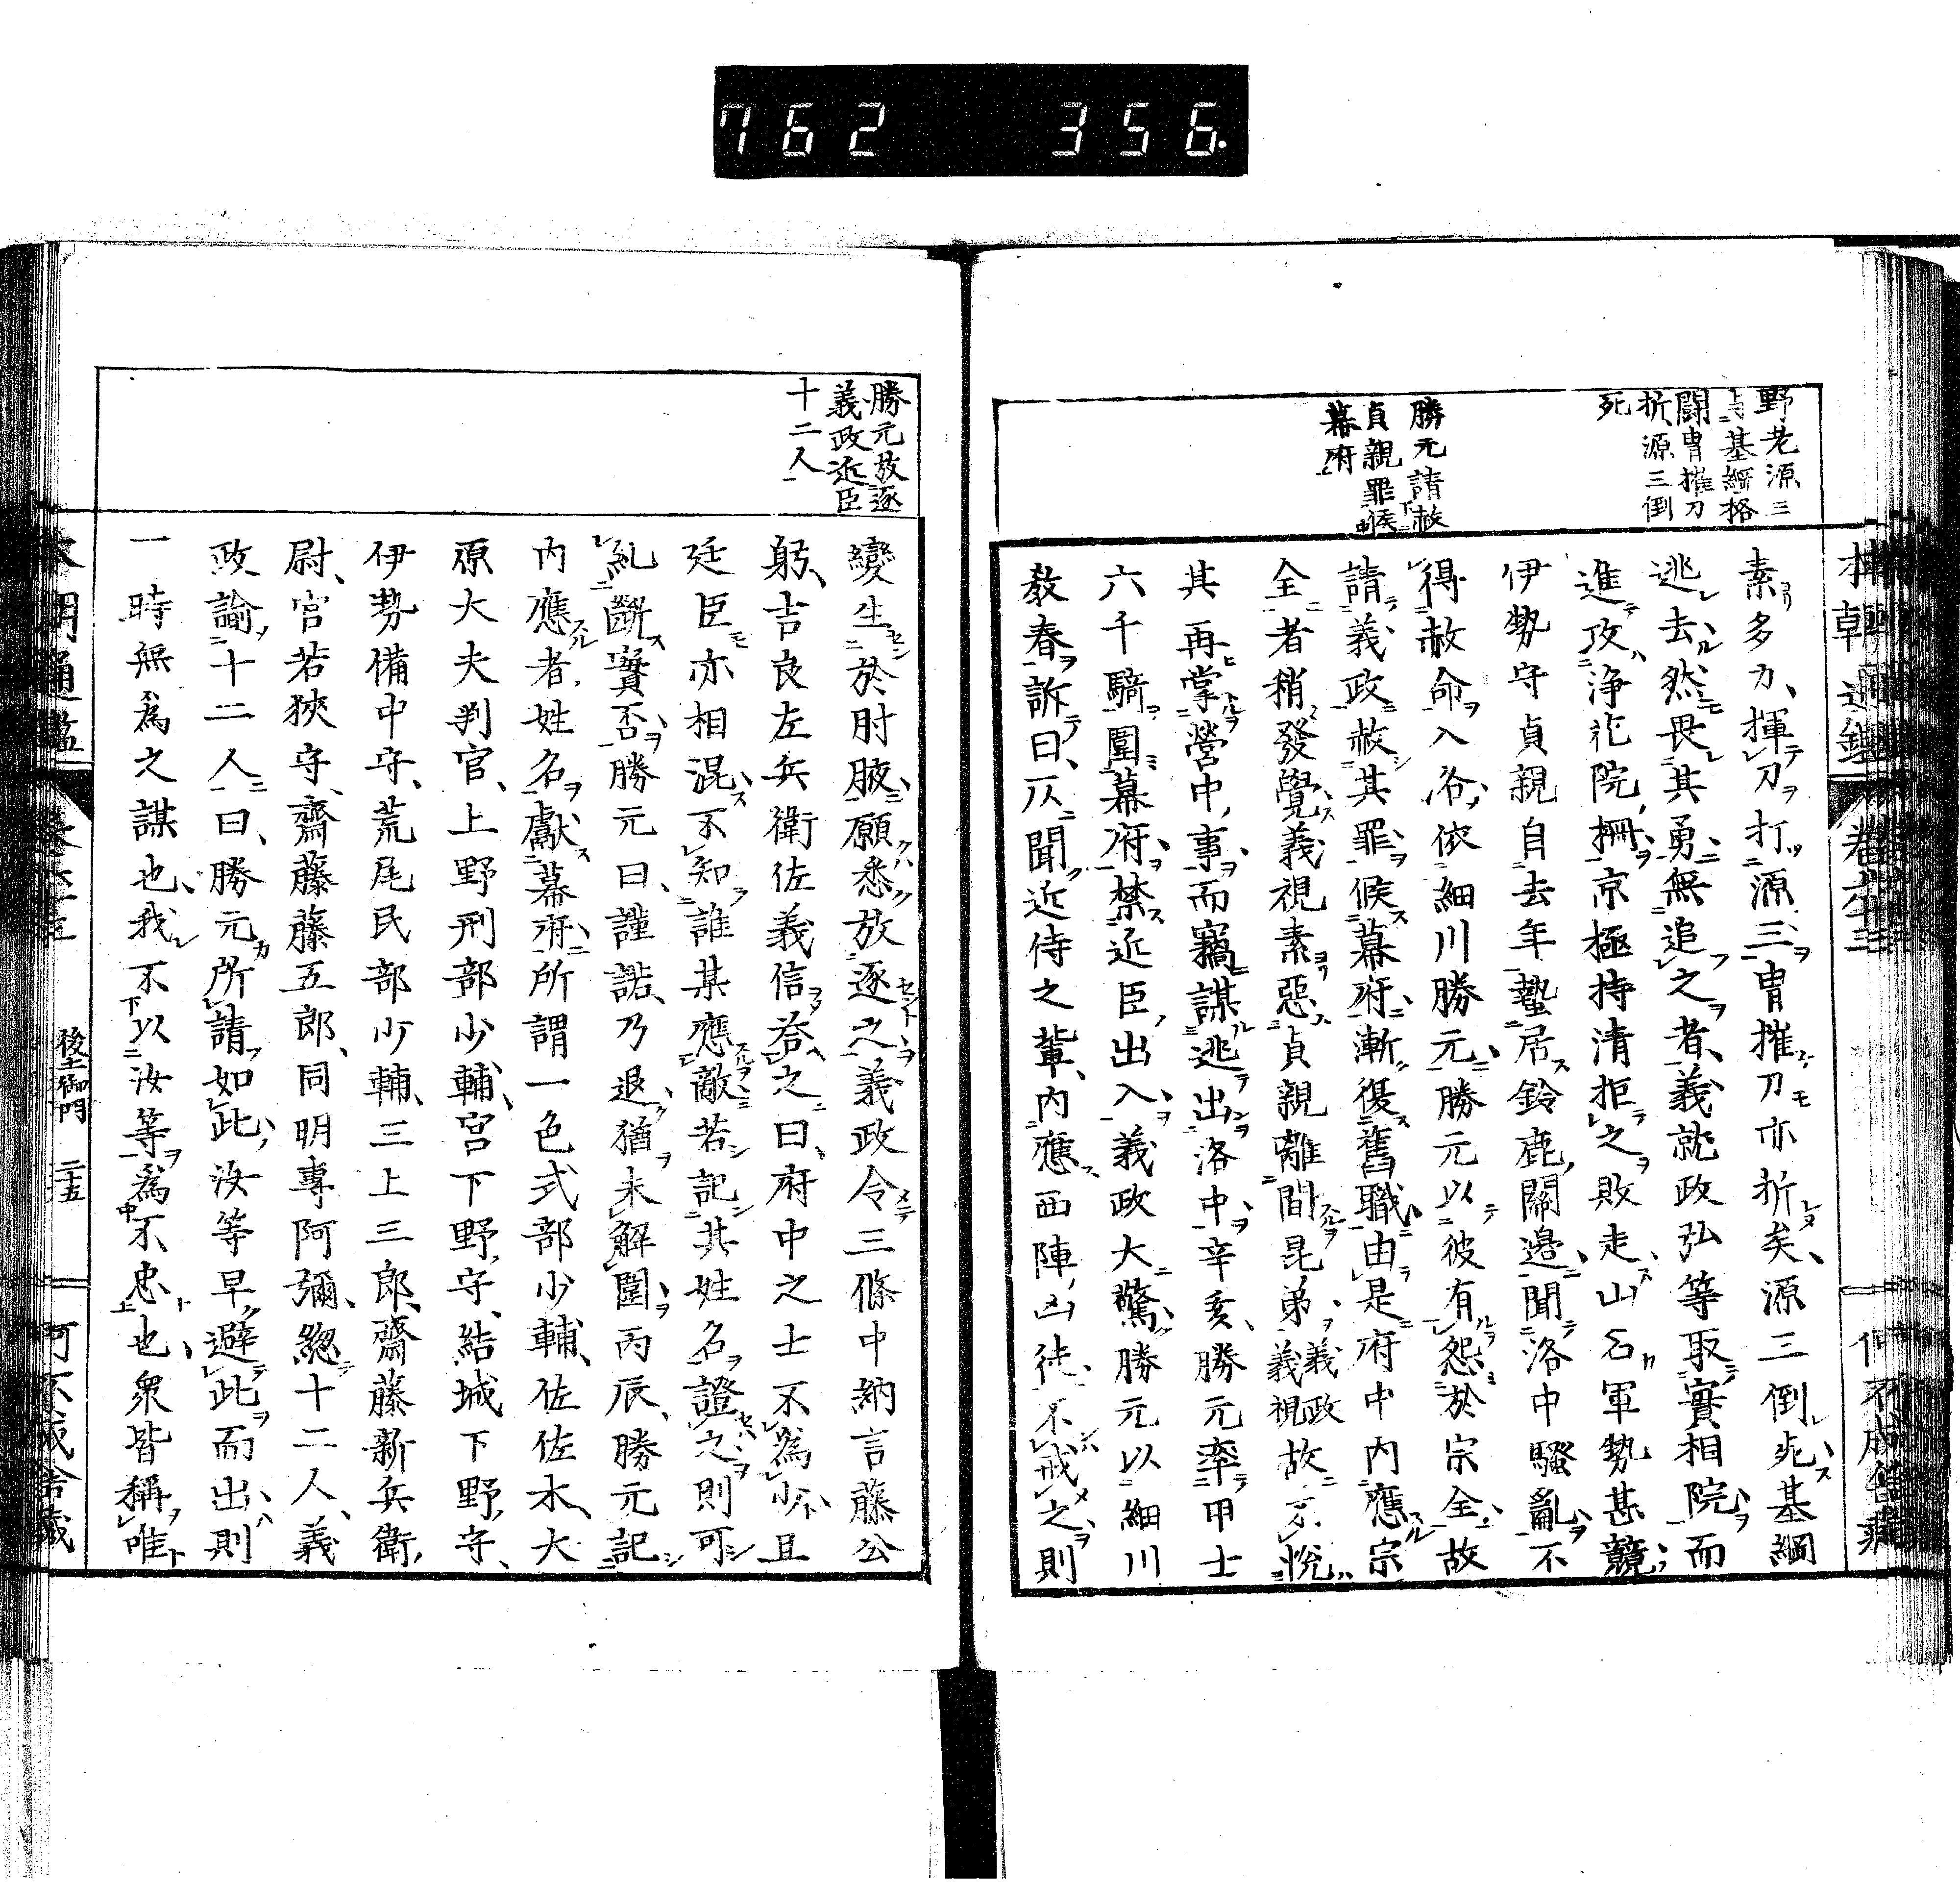 762 356.
野老源三
与基綱格
闘冑摧刀
折源三倒
死
勝元請赦
貞親罪候
幕府
素多力、揮刀打源三冑摧刀亦折矣、源三倒死基綱
逃去然畏其勇無追之者、義就政弘等取實相院而
進攻浄花院、柵京極持清拒之敗走山名軍勢甚競
伊勢守貞親自去年蟄居鈴鹿關邊、聞洛中騷亂不
得赦命入洛、依細川勝元勝元以彼有怨於宗全、故
請義政赦其罪候幕府漸復舊職由是府中内應宗
全者稍發覺義視素惡貞親離間昆弟義政義視故不悅
其再掌營中事而竊謀逃出洛中辛亥、勝元率甲士
六千騎圍幕府禁近臣出入義政大驚、勝元以細川
教春訴曰、仄聞近侍之輩、内應西陣凶徒不戒之則
勝元放逐
義政近臣
十二人
變生於肘腋願悉放逐之義政令三條中納言藤公
躬、吉良左兵衛佐義信荅之曰、府中之士不爲少且
廷臣亦相混不知誰某應敵若記其姓名證之則可
糺斷實否勝元曰、謹諾、乃退猶未解圍丙辰、勝元記
内應者姓名獻幕府所謂一色式部少輔、佐佐木、大
原大夫判官、上野刑部少輔、宮下野守、結城下野守、
伊勢備中守、荒尾民部少輔、三上三郎、齋藤新兵衛
尉、宮若狹守、齋藤藤五郎、同明專阿彌、總十二人、義
政諭十二人曰、勝元所請如此、汝等早避此而出則
一時無爲之謀也、我不以汝等爲不忠也衆皆稱唯
本朝通鑑
後土御門 二十五